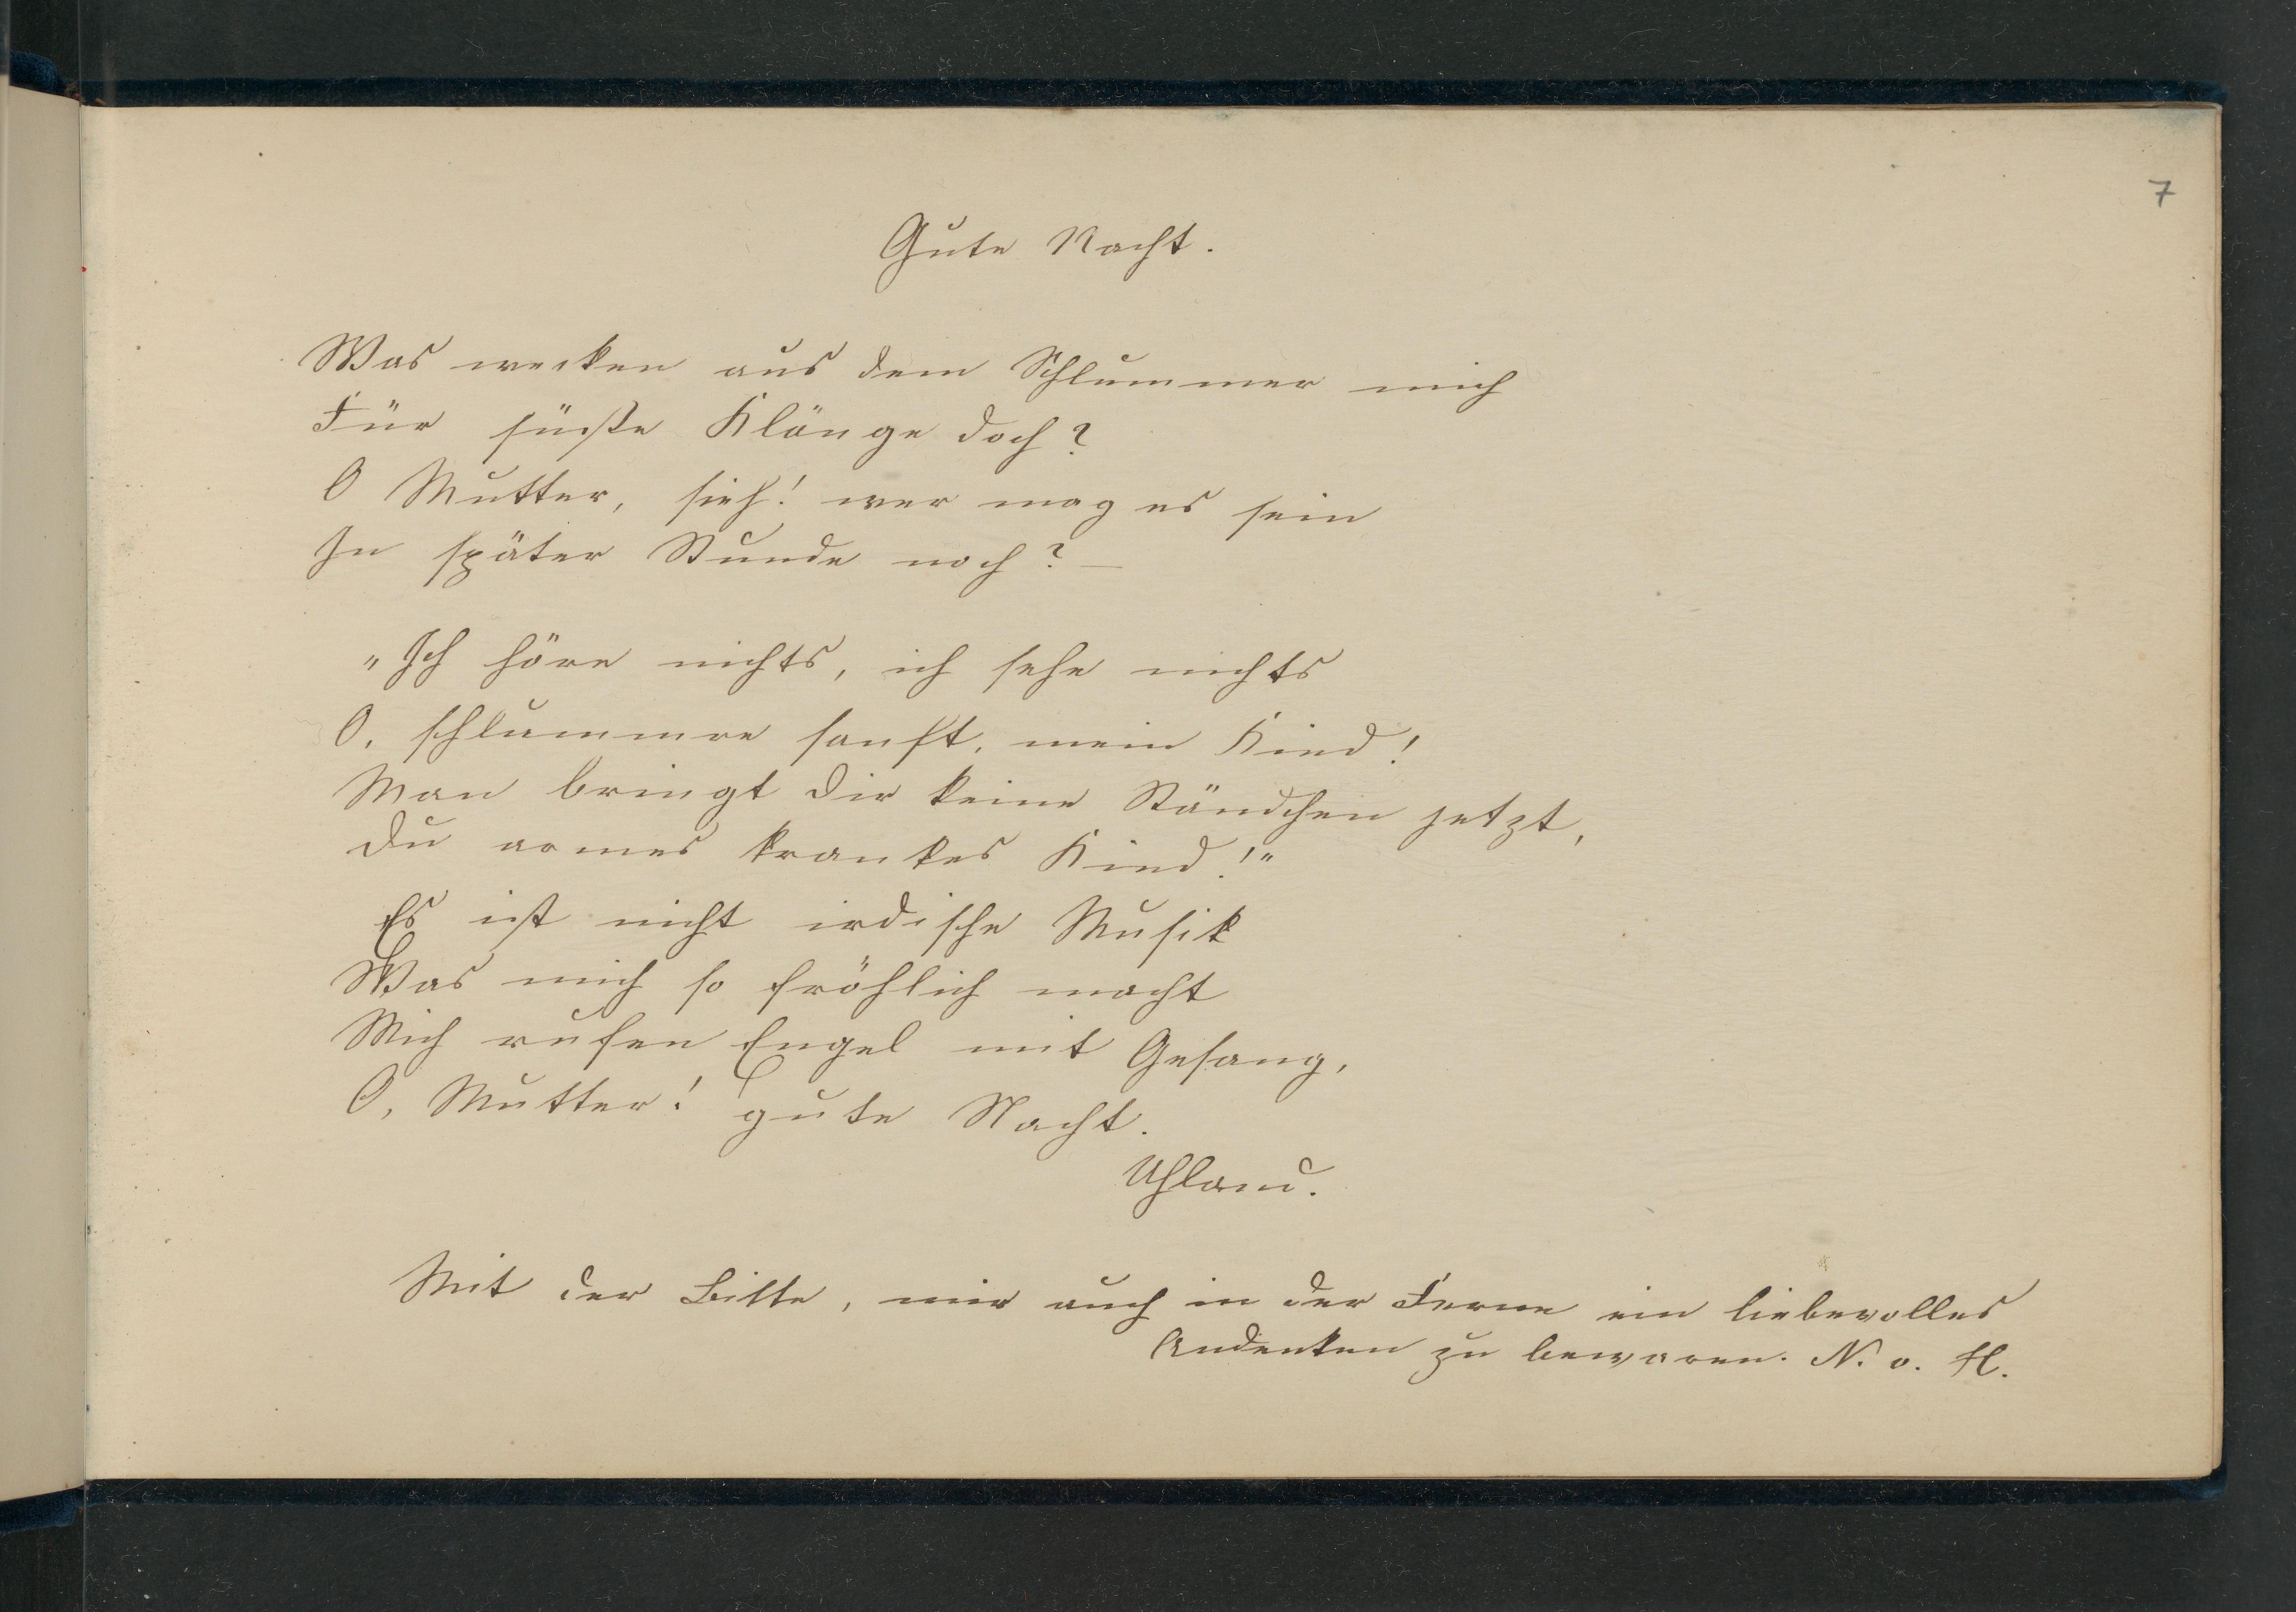 7
Gute Nacht.
Was wecken aus dem Schlummer mich
Für süße Klänge doch?
O Mutter, sieh! wer mag es sein
In später Stunde noch? —
„Ich höre nichts, ich sehe nichts
O, schlummre sanft, mein Kind!
Man bringt dir keine Ständchen jetzt,
Du armes krankes Kind!"
Es ist nicht irdische Musik
Was mich so fröhlich macht
Mich rufen Engel mit Gesang,
O, Mutter! gute Nacht.
Uhland.
Mit der Bitte, mir auch in der Ferne ein liebevolles
Andenken zu bewaren. N. v. H.